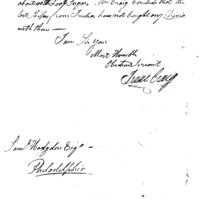 about with Loaf Sugar. Mr Craig concludes that the
late Ships from India have not bought any China
with them —
I am Sir Your
Most Humble
Obedient Servant
Isaac Craig
Saml Hodgdon Esqr
Philadelphia